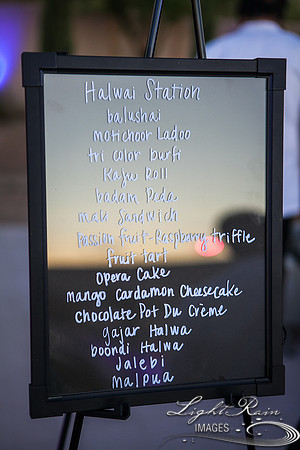 Halwai Station
balushai
motichoor Ladoo
tri color burfi
Kaju Roll
badam Peda
malai Sandwich
passion fruit-Raspberry triffle
fruit tart
Opera Cake
mango Cardamon Cheesecake
chocolate Pot Du Crème
gajar Halwa
boondi Halwa
Jalebi
malpua
LightRain
IMAGES